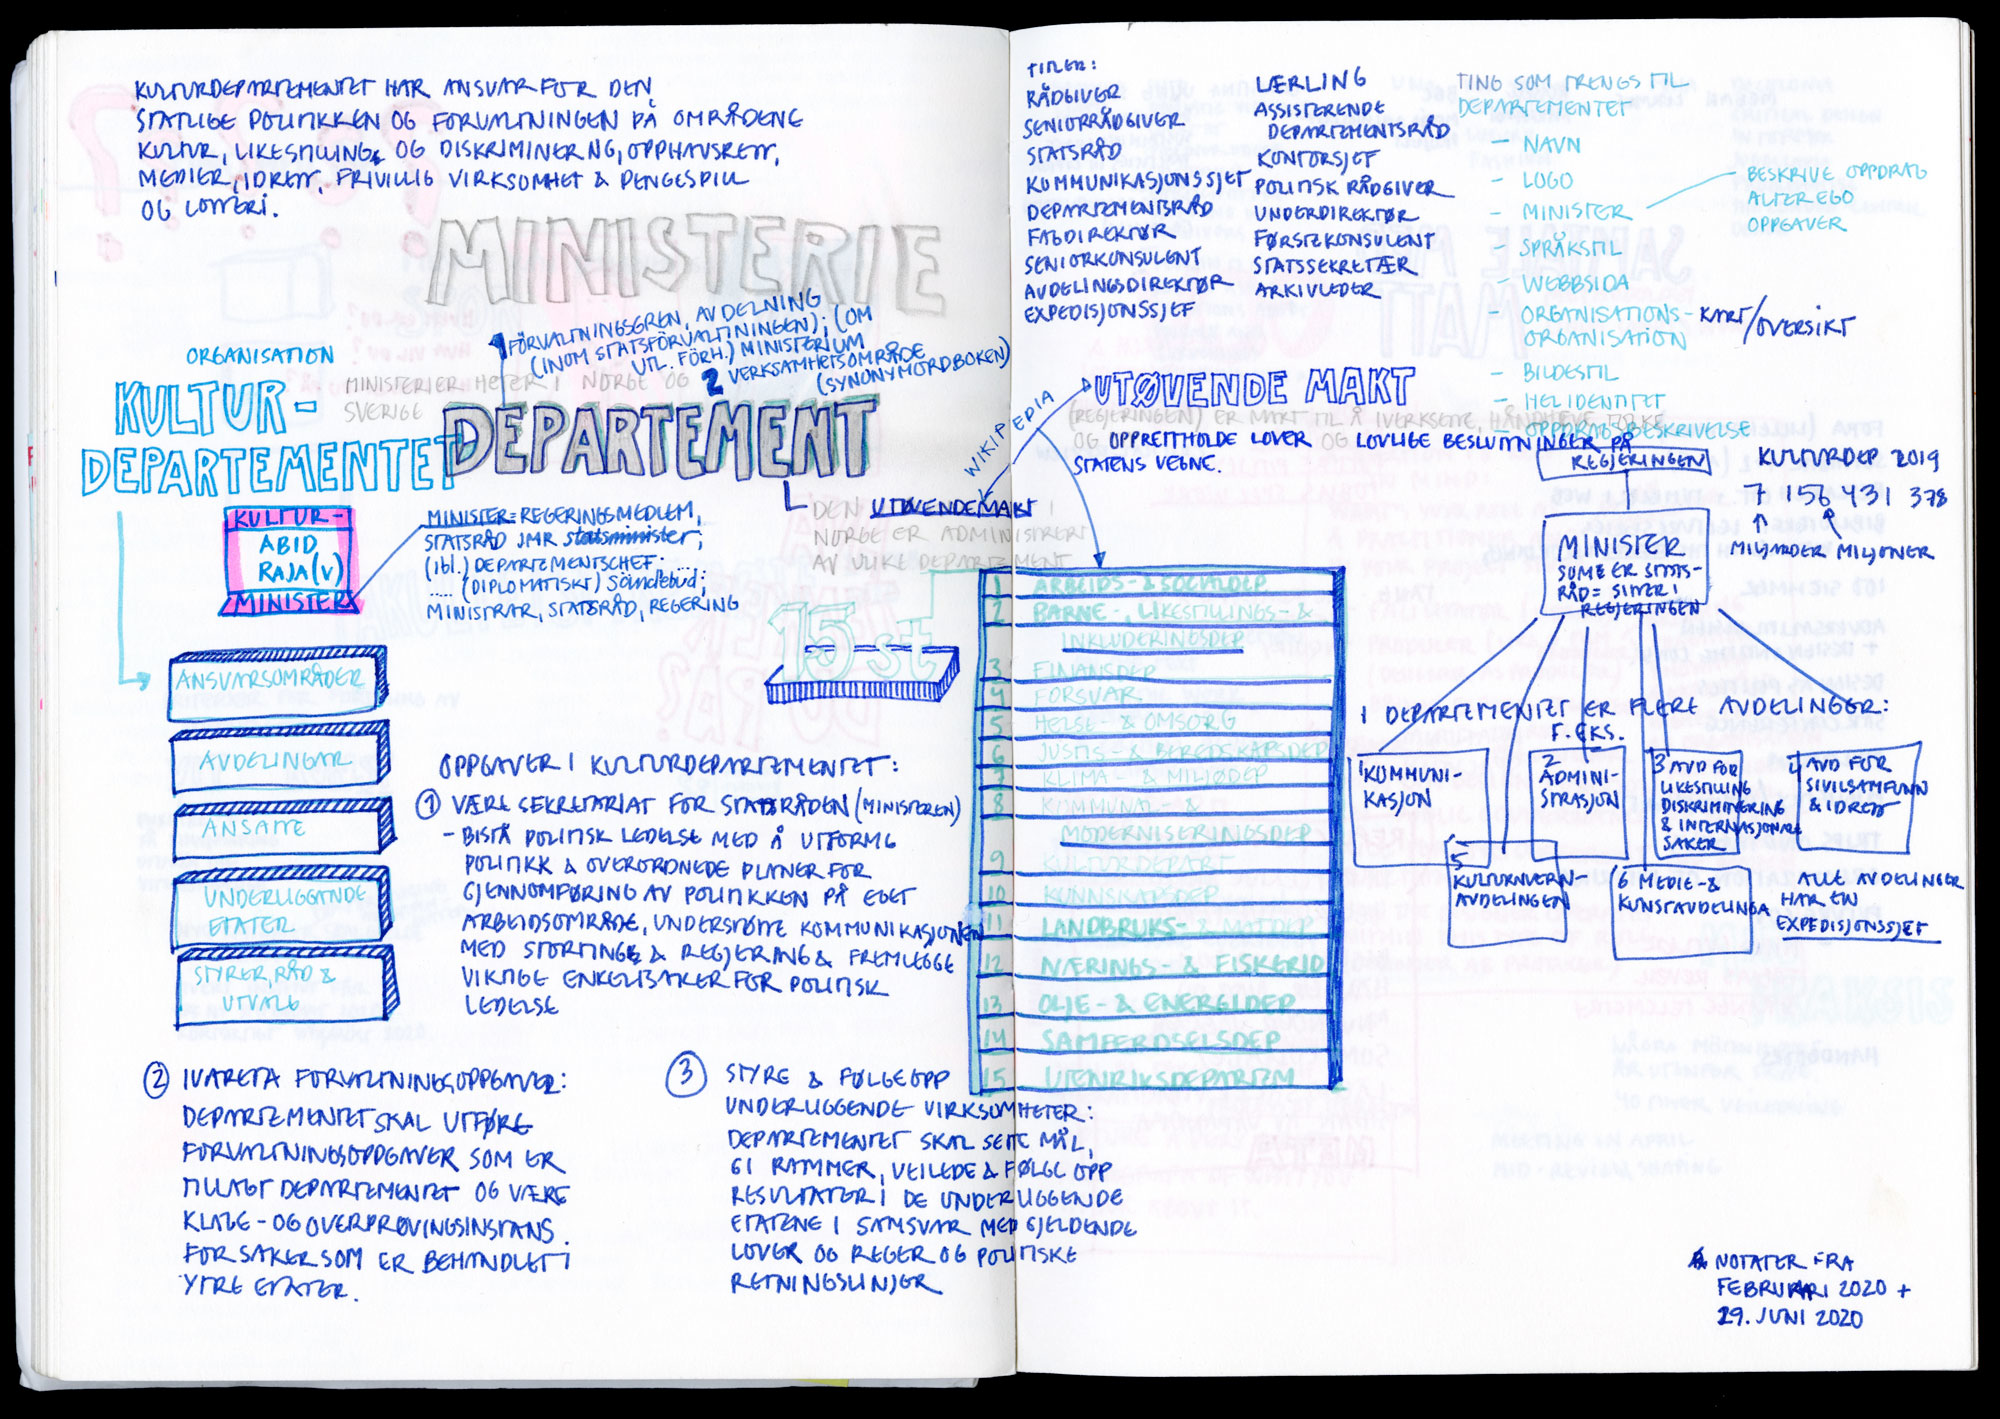 KULTURDEPARTEMENTET HAR ANSVAR FOR DEN
STATLIGE POLITIKKEN OG FORVALTNINGEN PÅ OMRÅDENE
KULTUR, LIKESTILLING OG DISKRIMINERING, OPPHAVSRETT,
MEDIER, IDRETT, FRIVILLIG VIRKSOMHET & PENGESPILL
OG LOTTERI.
MINISTERIE
FÖRVALTNINGSGREN, AVDELNING
(INOM STATSFÖRVALTNINGEN); (OM
UTL. FÖRH.) MINISTERIUM
2 VERKSAMHETSOMRÅDE
(SYNONYMORDBOKEN)
MINISTERIER HETER I NORGE OG
SVERIGE
DEPARTEMENT
ORGANISATION
KULTUR-
DEPARTEMENTET
KULTUR-
ABID
RAJA (V)
MINISTER
MINISTER = REGERINGSMEDLEM,
STATSRÅD JMR statsminister;
(ibl.) DEPARTEMENTSCHEF;
..... (DIPLOMATISKT) Sändebud;
MINISTRAR, STATSRÅD, REGERING
DEN UTØVENDE MAKT I
NORGE ER ADMINISTRERT
AV ULIKE DEPARTEMENT
15 st
ANSVARSOMRÅDER
AVDELINGAR
ANSATTE
UNDERLIGGENDE
ETATER
STYRER, RÅD &
UTVALG
OPPGAVER I KULTURDEPARTEMENTET:
1 VÆRE SEKRETARIAT FOR STATSRÅDEN (MINISTEREN)
- BISTÅ POLITISK LEDELSE MED Å UTFORME
POLITIKK & OVERORDNEDE PLANER FOR
GJENNOMFØRING AV POLITIKKEN PÅ EGET
ARBEIDSOMRÅDE, UNDERSTØTTE KOMMUNIKASJONEN
MED STORTINGET & REGJERING & FREMLEGGE
VIKTIGE ENKELTSAKER FOR POLITISK
LEDELSE
2 IVARETA FORVALTNINGSOPPGAVER:
DEPARTEMENTET SKAL UTFØRE
FORVALTNINGSOPPGAVER SOM ER
TILLAGT DEPARTEMENTET OG VÆRE
KLAGE- OG OVERPRØVINGSINSTANS
FOR SAKER SOM ER BEHANDLET I
YTRE ETATER.
3 STYRE & FØLGE OPP
UNDERLIGGENDE VIRKSOMHETER:
DEPARTEMENTET SKAL SETTE MÅL,
GI RAMMER, VEILEDE & FØLGE OPP
RESULTATER I DE UNDERLIGGENDE
ETATENE I SAMSVAR MED GJELDENDE
LOVER OG REGER OG POLITISKE
RETNINGSLINJER
TITLER:
RÅDGIVER
SENIORRÅDGIVER
STATSRÅD
KOMMUNIKASJONSSJEF
DEPARTEMENTSRÅD
FAGDIREKTØR
SENIORKONSULENT
AVDELINGSDIREKTØR
EXPEDISJONSSJEF
LÆRLING
ASSISTERENDE
DEPARTEMENTSRÅD
KONTORSJEF
POLITISK RÅDGIVER
UNDERDIREKTØR
FØRSTEKONSULENT
STATSSEKRETÆR
ARKIVLEDER
TING SOM TRENGS TIL
DEPARTEMENTET
- NAVN
- LOGO
- MINISTER
BESKRIVE OPPDRAG
ALTER EGO
OPPGAVER
- SPRÅKSTIL
- WEBBSIDA
- ORGANISATIONS-KART/OVERSIKT
ORGANISATION
- BILDESTIL
- HEL IDENTITET
- OPPDRAG BESKRIVELSE
WIKIPEDIA
UTØVENDE MAKT
(REGJERINGEN) ER MAKT TIL Å IVERKSETTE, HÅNDHEVE, TOLKE
OG OPPRETTHOLDE LOVER OG LOVLIGE BESLUTNINGER PÅ
STATENS VEGNE.
1 ARBEIDS- & SOCIALDEP
2 BARNE-, LIKESTILLINGS- &
INKLUDERINGSDEP
3 FINANSDEP
4 FORSVAR
5 HELSE- & OMSORG
6 JUSTIS- & BEREDSKAPSDEP
7 KLIMA & MILJØDEP
8 KOMMUNAL- &
MODERNISERINGSDEP
9 KULTURDEPART
10 KUNNSKAPSDEP
11 LANDBRUKS- & MATDEP
12 NÆRINGS- & FISKERID
13 OLJE- & ENERGIDEP
14 SAMFERDSELSDEP
15 UTENRIKSDEPARTEM
REGJERINGEN
KULTURDEP 2019
7 156 431 378
MILJARDER MILJONER
MINISTER
SOM ER STATS-
RÅD = SITTER I
REGJERINGEN
I DEPARTEMENTET ER FLERE AVDELINGER:
F. EKS.
1 KOMMUNI-
KASJON
2 ADMINI-
STRASJON
3 AVD FOR
LIKESTILLING
DISKRIMINERING
& INTERNASJONALE
SAKER
4 AVD FOR
SIVILSAMFUNN
& IDRETT
5 KULTURVERN-
AVDELINGEN
6 MEDIE- &
KUNSTAVDELINGA
ALLE AVDELINGER
HAR EN
EXPEDISJONSSJEF
NOTATER FRA
FEBRUARI 2020 +
29. JUNI 2020